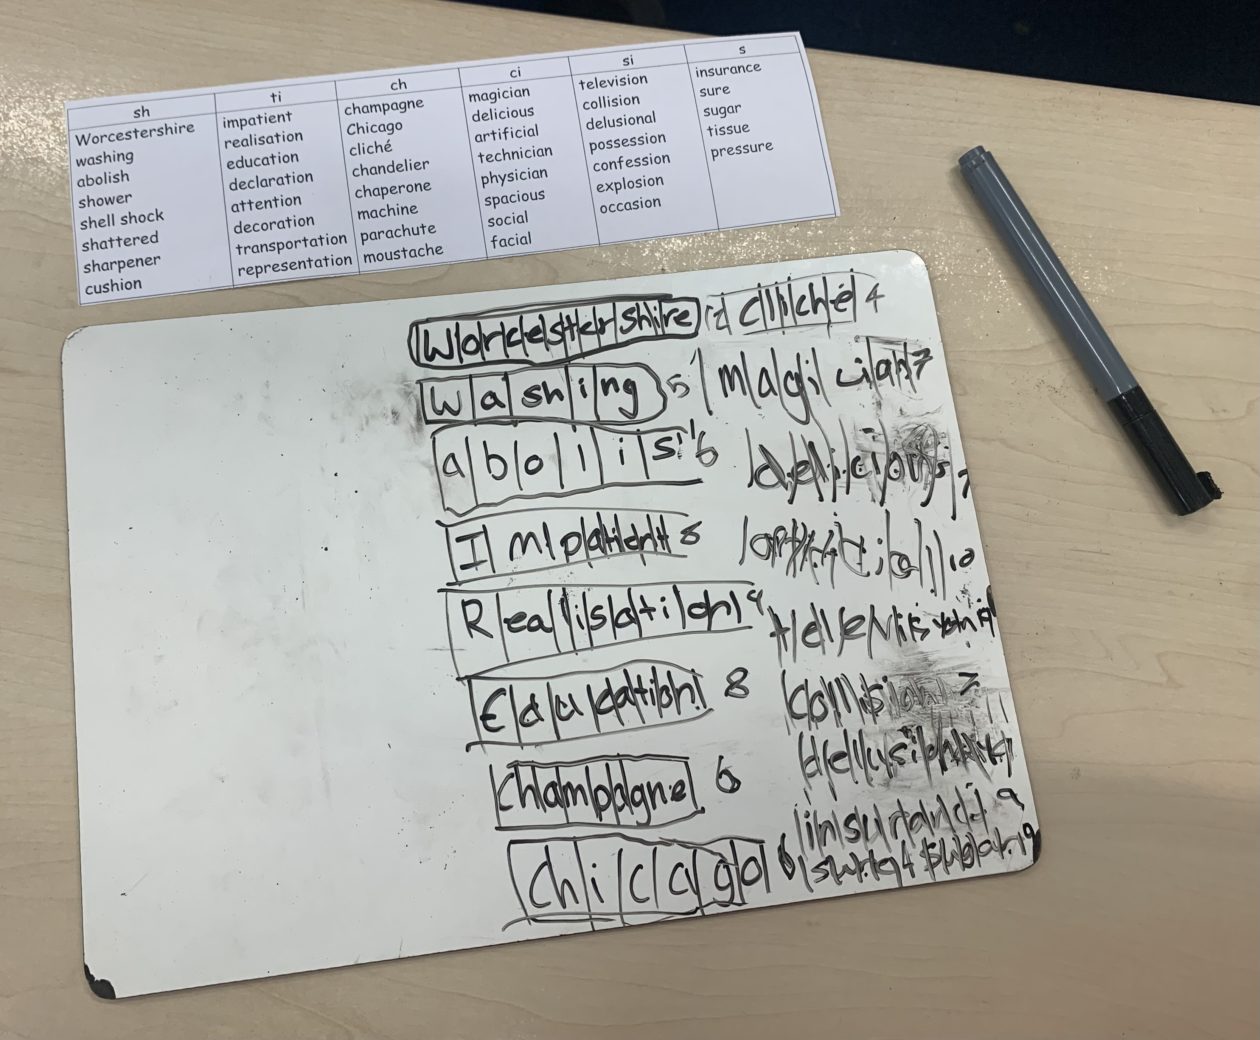 sh ti ch ci si s
Worcestershire impatient champagne magician television insurance
washing realisation Chicago delicious collision sure
abolish education cliché artificial delusional sugar
shower declaration chandelier technician possession tissue
shell shock attention chaperone physician confession pressure
shattered decoration machine spacious explosion
sharpener transportation parachute social occasion
cushion representation moustache facial
Worcestershire
cliché 4
washing 5
magician 7
abolis 6
delicious 7
Impatient 8
10
Realisation 9
Education 8
collision 7
Champagne 6
Chicago 6
9